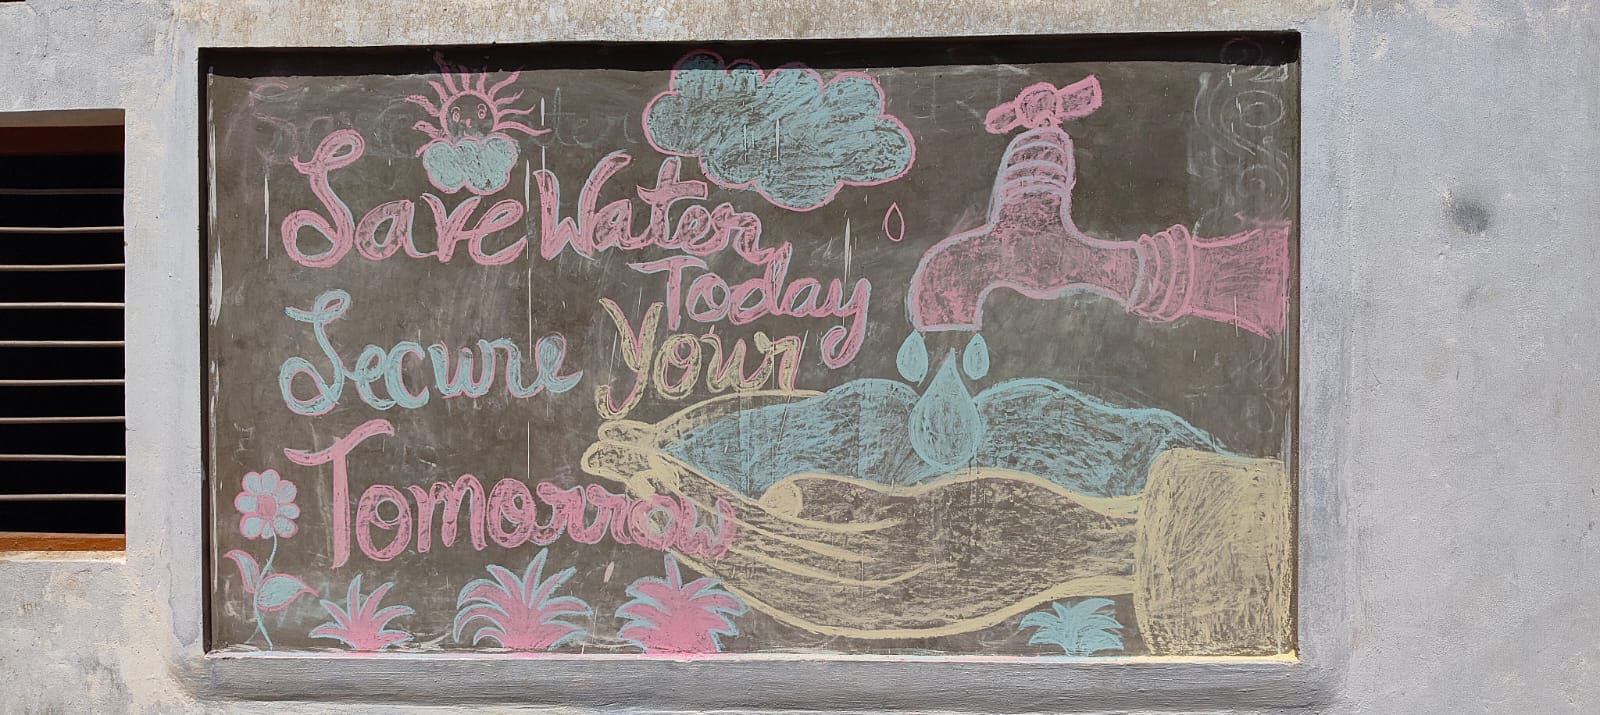 Save Water
Today
Secure Your
Tomorrow